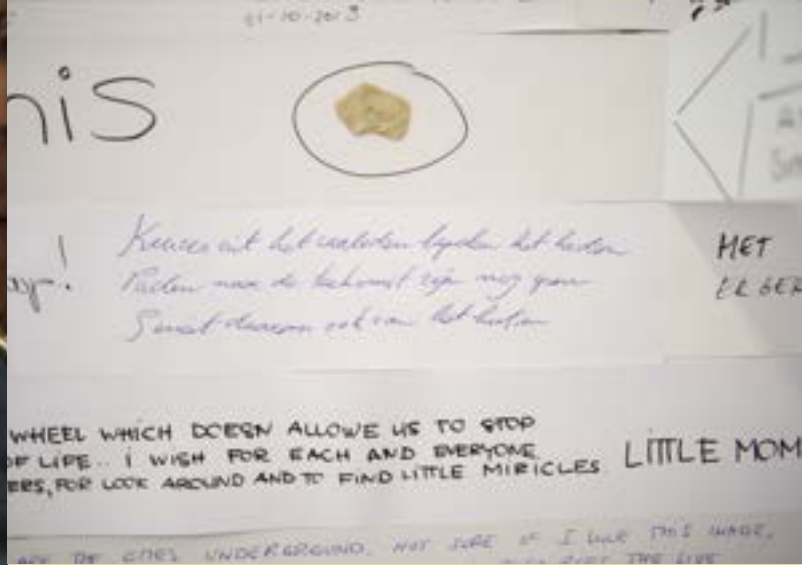 01-10-2013
nis
Keuzes uit het verleden bepalen het heden
Paden naar de toekomst zijn nog
Geniet daarom ook van het heden
MET
WHEEL WHICH DOESN ALLOWE US TO STOP
OF LIFE.. I WISH FOR EACH AND EVERYONE
ERS, FOR LOOK AROUND AND TO FIND LITTLE MIRICLES.
LITTLE MOM
ARE THE UNDERGROUND. NOT SURE IF I LIKE THIS IMAGE,
THE LIVE